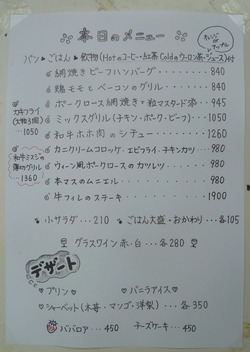 本日のメニュー
パン or ごはん 飲物(Hotのコーヒー・紅茶 Coldのウーロン茶・ジュース)付
網焼きビーフハンバーグ・・・・840
鶏モモとベーコンのグリル・・・840
ポークロース網焼き・粒マスタード添・・・945
ミックスグリル(チキン・ポーク・ビーフ)・・・1050
和牛ホホ肉のシチュー・・・1260
カニクリームコロッケ、エビフライ、チキンカツ・・・980
ウィーン風ポークロースのカツレツ・・・980
本マスのムニエル・・・980
牛フィレのステーキ・・・1900
カキフライ
(大粒3個)
・・・1050
和牛ミスジの
薄切グリル
・・・1360
小サラダ・・・210
ごはん大盛・おかわり・・・各105
グラスワイン 赤・白・・・各280
デザート
プリン
バニラアイス
シャーベット(木苺・マンゴ・洋梨)・・・各350
ババロア・・・450
チーズケーキ・・・450